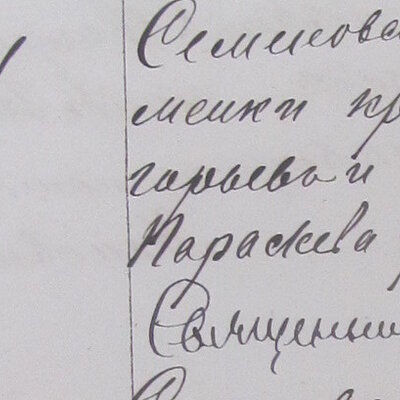 Семенова
менки кр
горьева и
Параскева
Священни